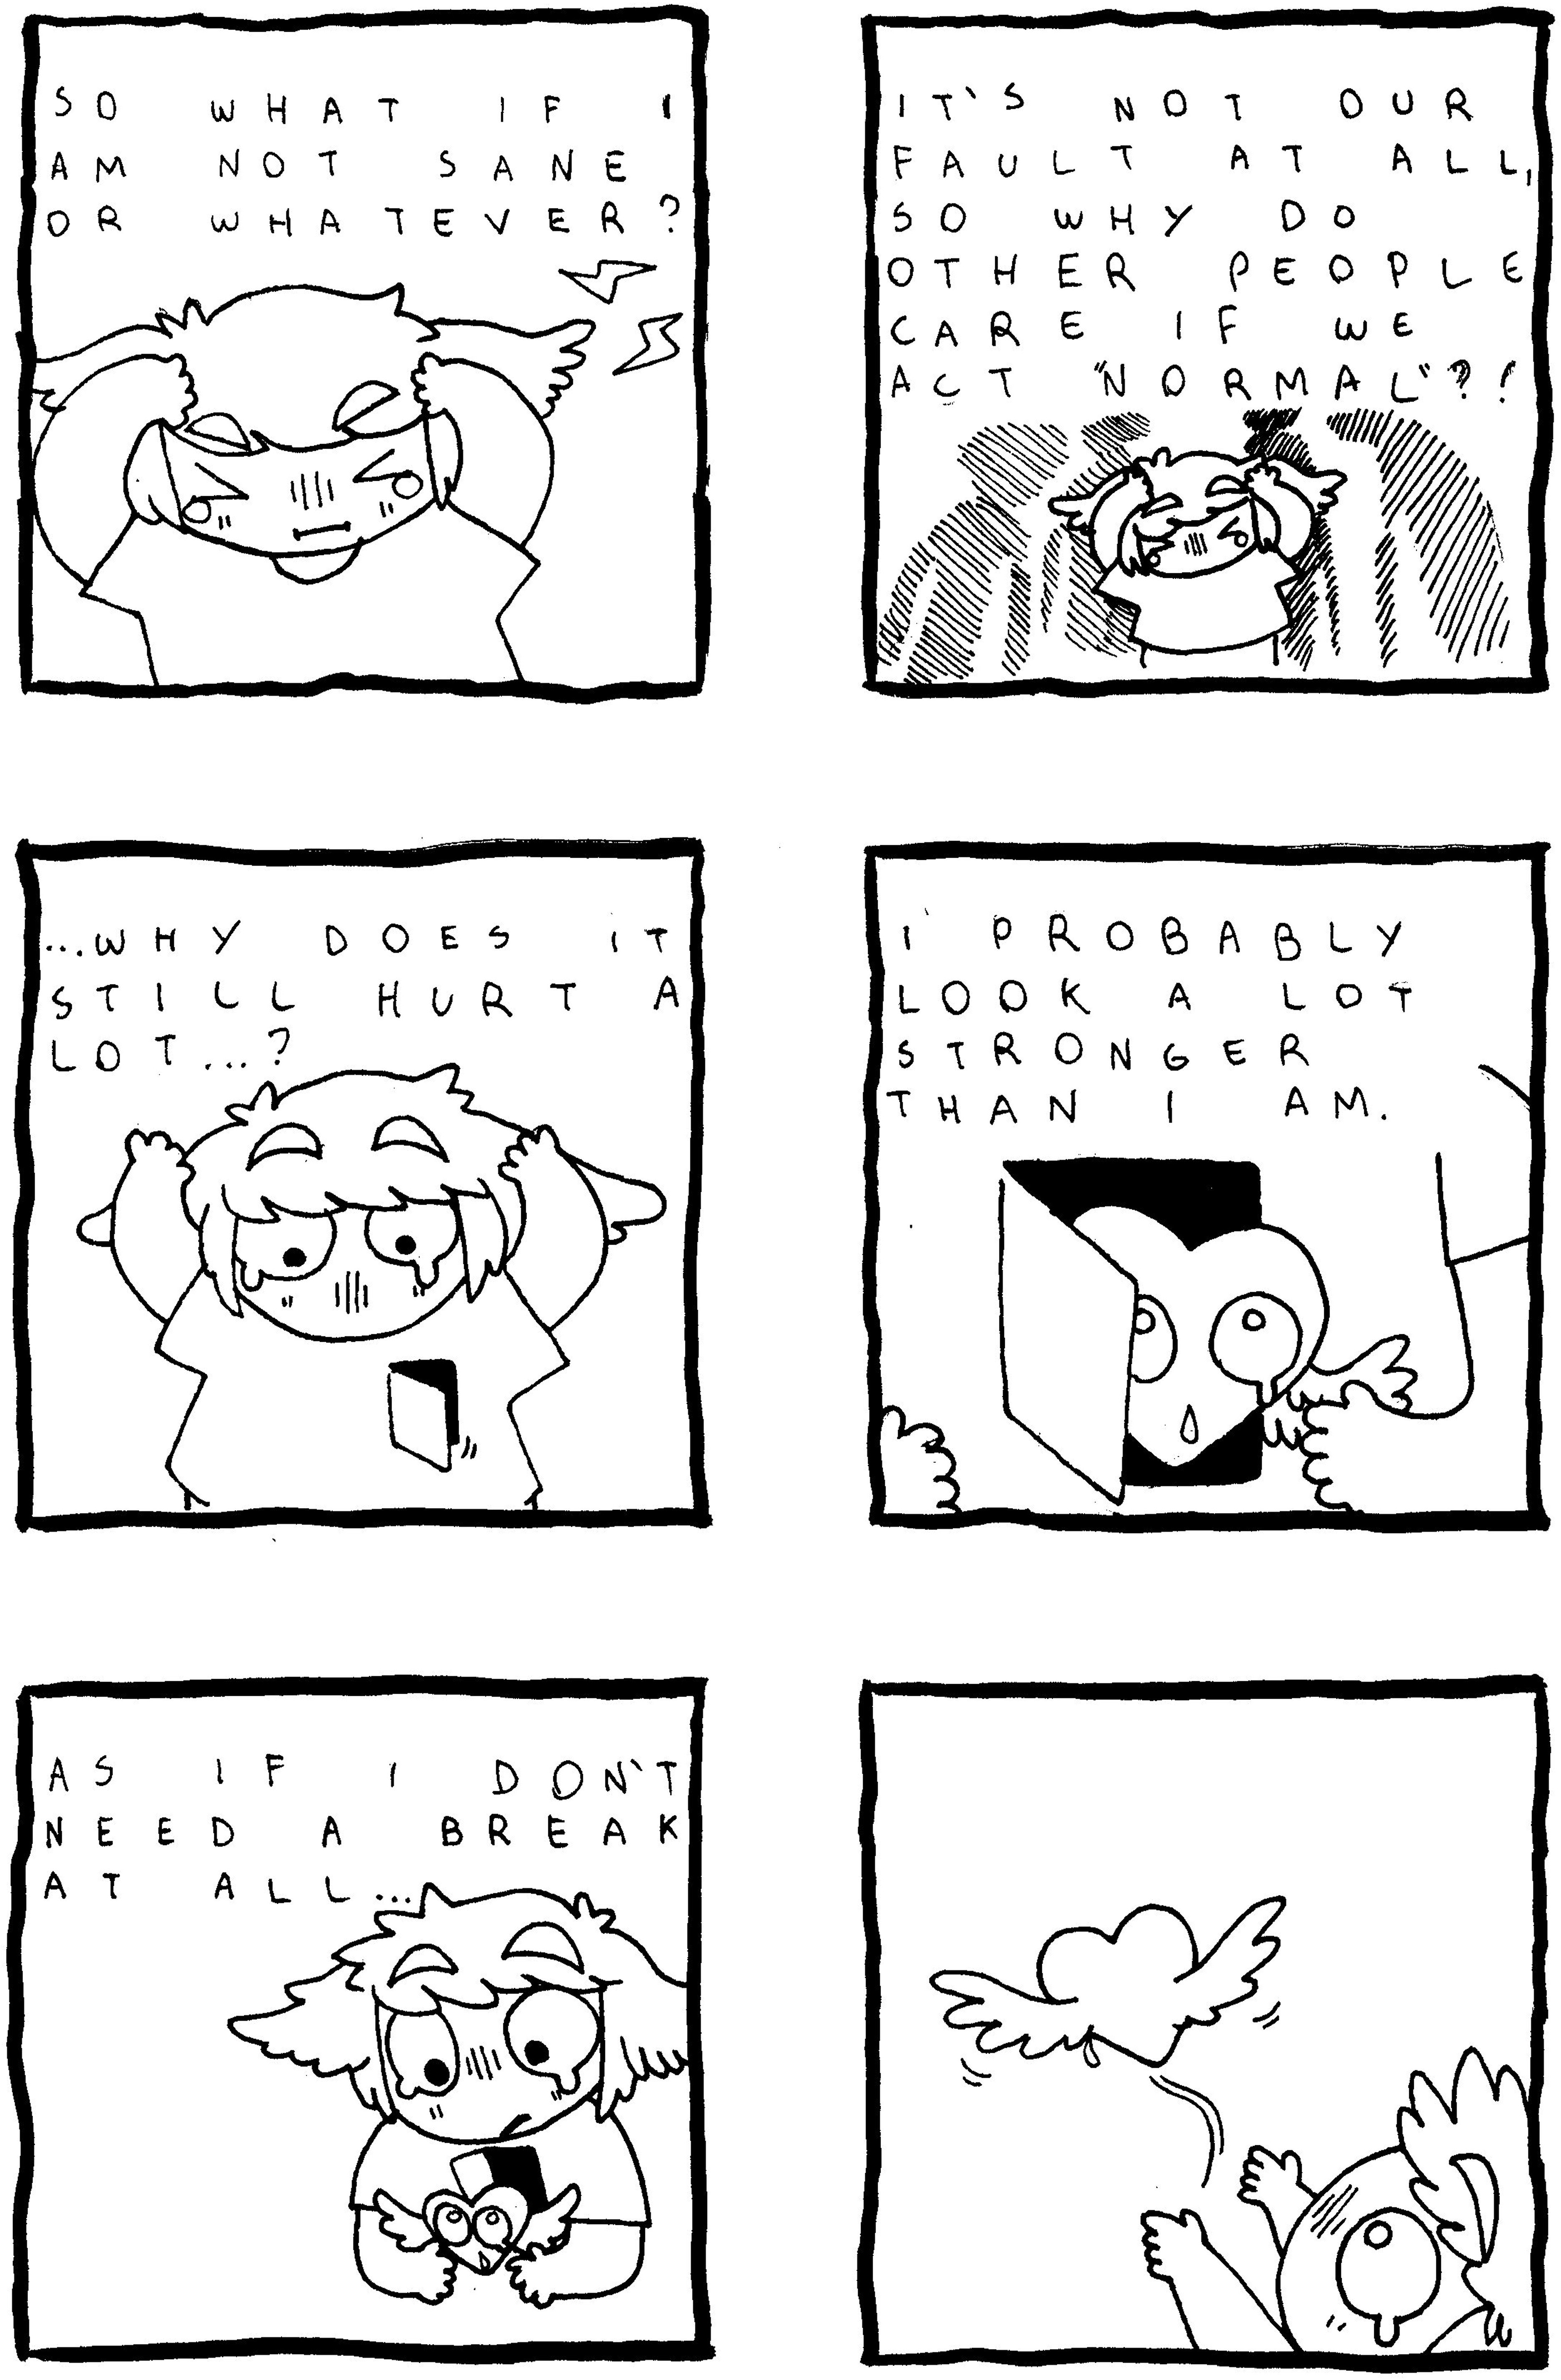 SO WHAT IF I
AM NOT SANE
OR WHATEVER?
IT'S NOT OUR
FAULT AT ALL,
SO WHY DO
OTHER PEOPLE
CARE IF WE
ACT "NORMAL"?!
...WHY DOES IT
STILL HURT A
LOT...?
I PROBABLY
LOOK A LOT
STRONGER
THAN I AM.
AS IF I DON'T
NEED A BREAK
AT ALL...